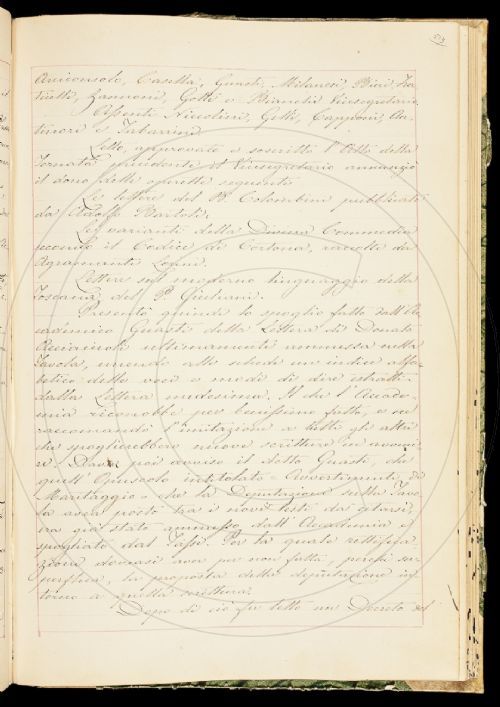 Arciconsolo, Casella, Guasti, Milanesi, Bini, Fra-
ticelli, Zannoni, Gotti e Bianchi Vicesegretario.
Assenti Niccolini, Gelli, Capponi, 
e Tabarrini.
Letto, approvato e soscritto l'Atto della
Tornata precedente il Vicesegretario annunziò
il dono delle operette seguenti
Le lettere del B. Colombini pubblicate
da Adolfo Bartoli.
Le varianti della Divina Commedia
secondo il Codice di Cortona, raccolte da
Agramante Lorini.
Lettere sul moderno linguaggio della
Toscana del P. Giuliani.
Presentò quindi lo spoglio fatto dall'Ac-
cademico Guasti della Lettera di Donato
Acciaiuoli ultimamente ammessa nella
Tavola, unendo alle schede un indice alfa-
betico delle voci e modi di dire estratti
dalla Lettera medesima. Il che l'Accade-
mia riconobbe per benissimo fatto, e ne
raccomandò l'imitazione a tutti gli altri
che spoglierebbero nuove scritture in avveni-
re. Dava poi avviso il detto Guasti, che
quell'Opuscolo intitolato - Avvertimenti di
Maritaggio - che la Deputazione sulla Tavo-
la avea posto tra i nuovi testi da citarsi,
era già stato ammesso dall'Accademia e
spogliato dal Tassi. Per la quale rettifica-
zione dovevasi aver per non fatta, perchè su-
perflua, la proposta della deputazione in-
torno a quella scrittura.
Dopo di ciò fu letto un Decreto del